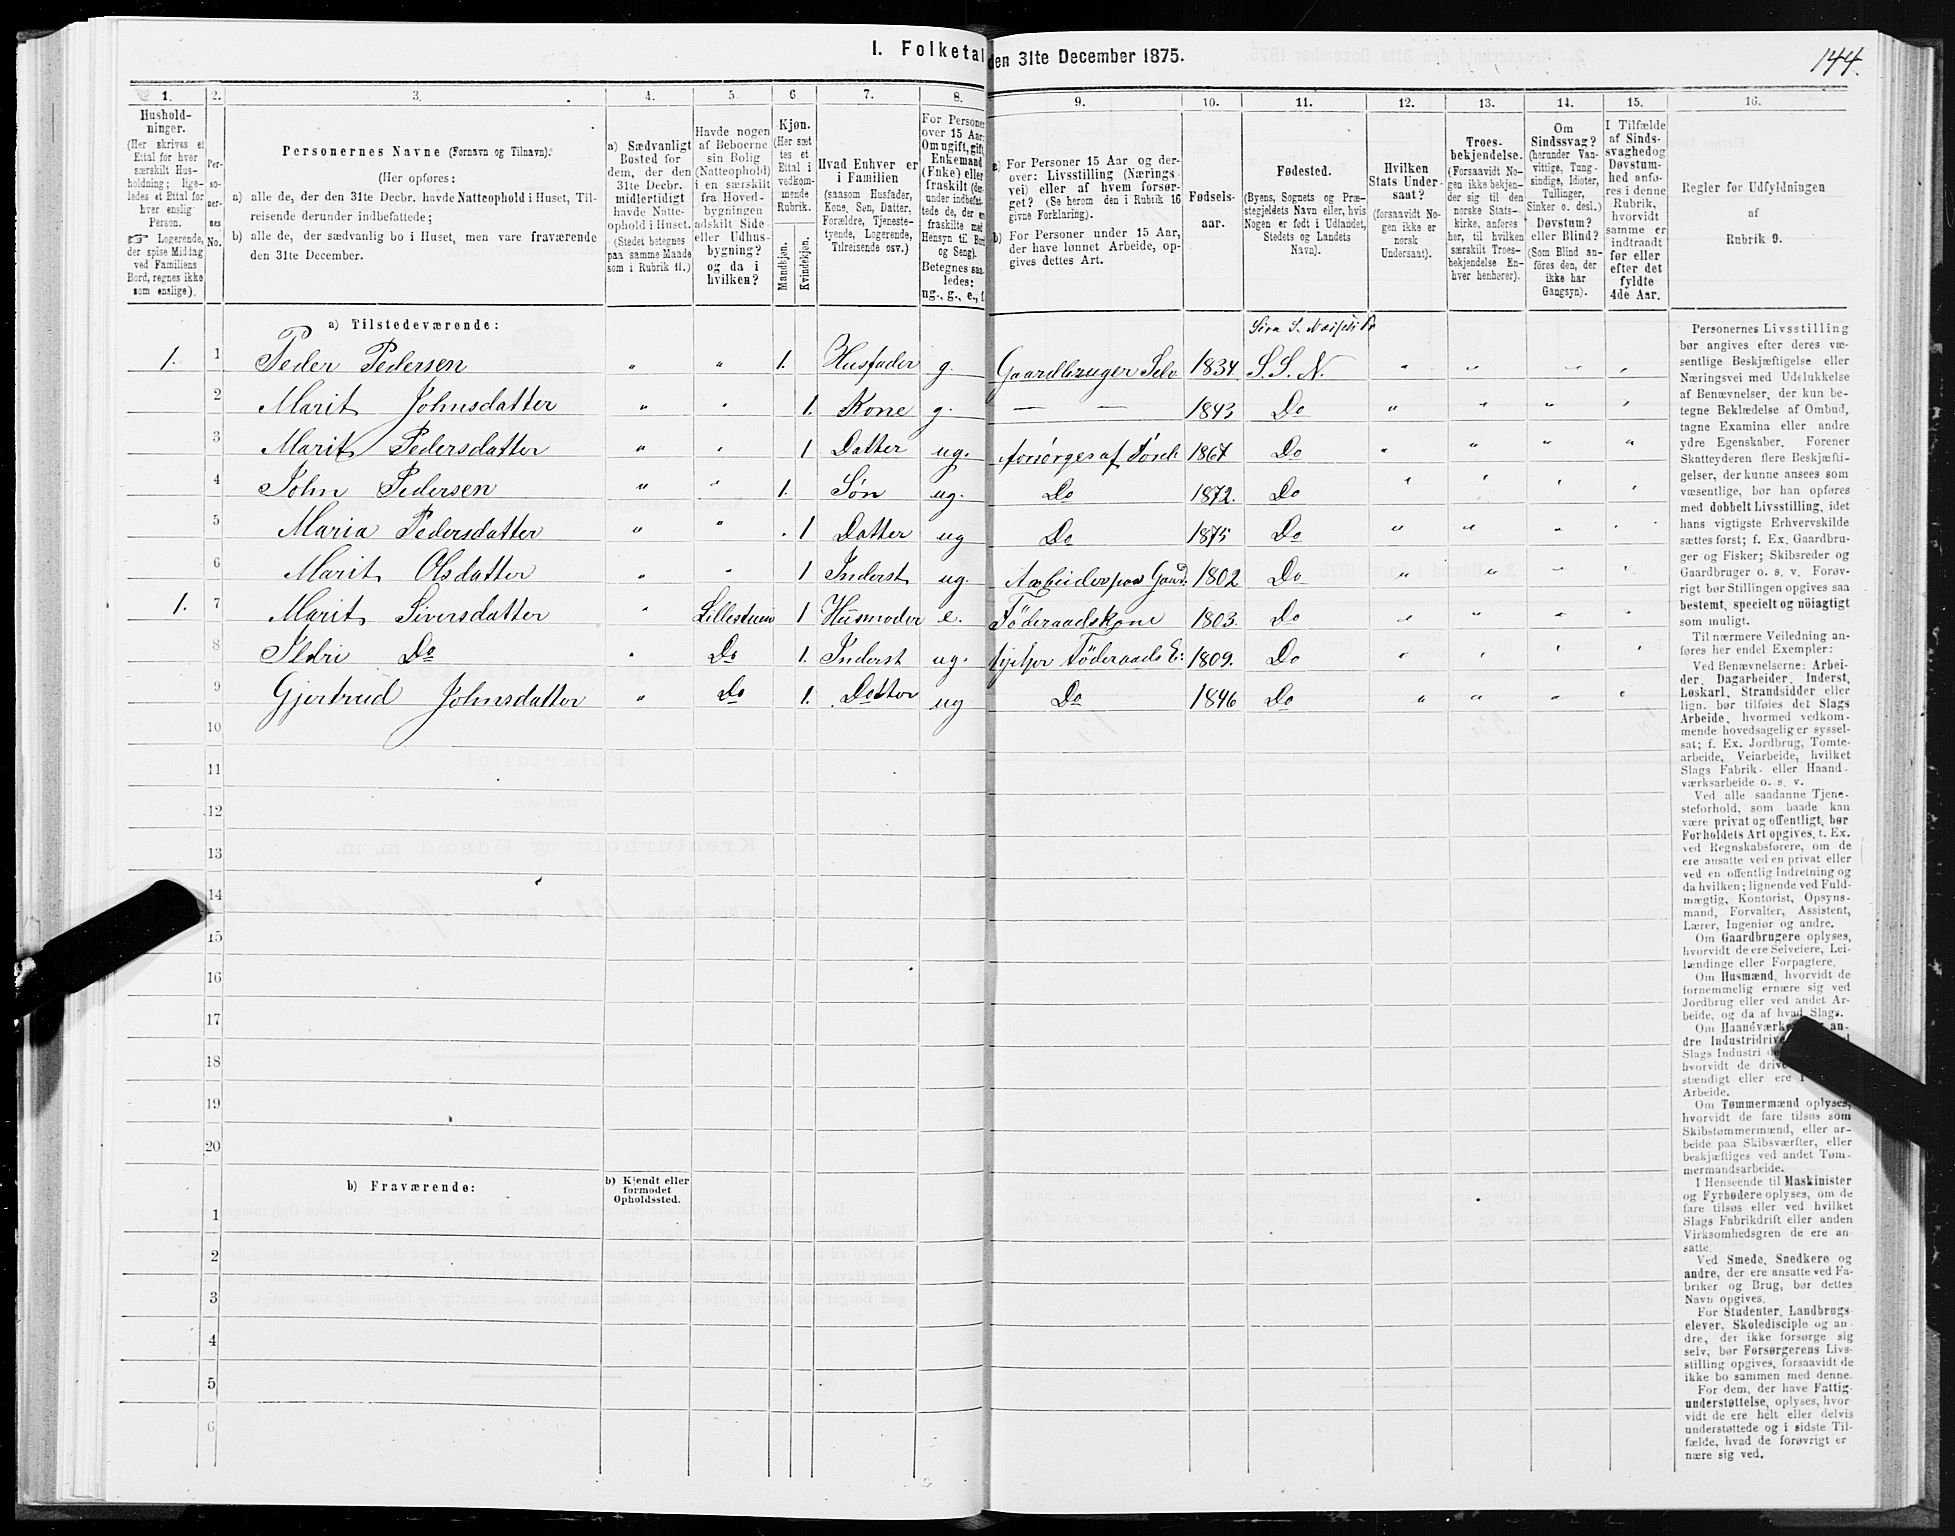 I. Folketal den 31te December 1875.
144.
1. 2. 3. 4. 5. 6 7. 8. 9. 10. 11. 12. 13. 14. 15. 16.
Hushold-
ninger.
(Her skrives et
Ettal for hver
særskilt Hus-
holdning; lige-
ledes et Ettal for
hver enslig
Person.
☞ Logerende,
der spise Middag
ved Familiens
Bord, regnes ikke
som enslige).
Per-
so-
ner-
nes
No.
Personernes Navne (Fornavn og Tilnavn).
(Her opføres:
a) alle de, der den 31te Decbr. havde Natteophold i Huset, Til-
reisende derunder indbefattede;
b) alle de, der sædvanlig bo i Huset, men vare fraværende
den 31te December.
a) Sædvanligt
Bosted for
dem, der den
31te Decbr.
midlertidigt
havde Natte-
ophold i Huset.
(Stedet betegnes
paa samme Maade
som i Rubrik 11.)
Havde nogen
af Beboerne
sin Bolig
(Natteophold)
i en særskilt
fra Hoved-
bygningen
adskilt Side-
eller Udhus-
bygning?
og da i
hvilken?
Kjøn.
(Her sæt
tes et
Ettal i
vedkom-
mende
Rubrik.
Mandkjøn.
Kvindekjøn.
Hvad Enhver er
i Familien
(saasom Husfader,
Kone, Søn, Datter,
Forældre, Tjeneste-
tyende, Logerende,
Tilreisende osv.)
For Personer
over 15 Aar:
Om ugift, gift,
Enkemand
(Enke) eller
fraskilt (der-
under indbefat-
tede de, der ere
fraskilte med
Hensyn til Bord
og Seng).
Betegnes saa-
ledes:
ug., g., e., f.
a) For Personer 15 Aar og der-
over: Livsstilling (Nærings-
vei) eller af hvem forsør-
get? (Se herom den i Rubrik 16
givne Forklaring).
b) For Personer under 15 Aar,
der have lønnet Arbeide, op-
gives dettes Art.
Fødsels-
aar.
Fødested.
(Byens, Sognets og Præ-
stegjeldets Navn eller, hvis
Nogen er født i Udlandet,
Stedets og Landets
Navn).
Hvilken
Stats Under-
saat?
(forsaavidt No-
gen ikke er
norsk
Undersaat).
Troes-
bekjendelse.
(Forsaavidt No-
gen ikke bekjen-
der sig til den
norske Stats-
kirke, anføres
her, til hvilken
særskilt Troes-
bekjendelse En-
hver henhører).
Om
Sindssvag?
(herunder Van-
vittige, Tung-
sindige, Idioter,
Tullinger,
Sinker o. desl.)
Døvstum?
eller Blind?
(Som Blind an-
føres den, der
ikke har
Gangsyn).
I Tilfælde
af Sinds-
svaghed og
Døvstum-
hed anfø-
res i denne
Rubrik,
hvorvidt
samme er
indtraadt
før eller
efter det
fyldte
4de Aar.
Regler før Udfyldningen
af
Rubrik 9.
a) Tilstedeværende:
1. 1 Peder Pedersen " " 1. Husfader g. Gaardbruger Selv 1834. S. S. N. " " " "
2 Marit Johnsdatter " " 1. Kone g. — — 1843 Do " " " "
3 Marit Pedersdatter " " 1 Datter ug. forsørges af 1867 Do " " " "
4 John Pedersen " " 1. Søn ug. Do 1872. Do " " " "
5 Maria Pedersdatter " " 1 Datter ug Do 1875 Do " " " "
6 Marit Olsdatter " " 1 Inderst ug. Arbeider paa Gaard. 1802 Do " " " "
1. 7 Marit Siversdatter " Lillestuen 1 Husmoder e. Föderaadskone 1803. Do " " " "
8 Ildri Do " Do 1. Inderst ug. Föderaads E: 1809. Do " " " "
9 Gjertrud Johnsdatter " Do 1. Datter ug Do 1846 Do " " " "
10
11
12
13
14
15
16
17
18
19
20
b) Fraværende:
b) Kjendt eller
formodet
Opholdssted.
1
2
3
4
5
6
Personernes Livsstilling
bør angives efter deres væ-
sentlige Beskjæftigelse eller
Næringsvei med Udelukkelse
af Benævnelser, der kun be-
tegne Beklædelse af Ombud,
tagne Examina eller andre
ydre Egenskaber. Forener
Skatteyderen flere Beskjæfti-
gelser, der kunne ansees som
væsentlige, bør han opføres
med dobbelt Livsstilling, idet
hans vigtigste Erhvervskilde
sættes først; f. Ex. Gaardbru-
ger og Fisker; Skibsreder og
Gaardbruger o. s. v. Forøv-
rigt bør Stillingen opgives saa
bestemt, specielt og nøiagtigt
som muligt.
Til nærmere Veiledning an-
føres her endel Exempler:
Ved Benævnelserne: Arbei-
der, Dagarbeider, Inderst,
Løskarl, Strandsidder eller
lign. bør tilføies det Slags
Arbeide, hvormed vedkom-
mende hovedsagelig er syssel-
sat; f. Ex. Jordbrug, Tomte-
arbeide, Veiarbeide, hvilket
Slags Fabrik- eller Haand-
værksarbeide o. s. v.
Ved alle saadanne Tjene-
steforhold, som baade kan
være privat og offentligt, bør
Forholdets Art opgives, t. Ex.
ved Regnskabsførere, om de
ere ansatte ved en privat eller
ved en offentlig Indretning og
da hvilken; lignende ved Fuld-
mægtig, Kontorist, Opsyns-
mand, Forvalter, Assistent,
Lærer, Ingeniør og andre.
Om Gaardbrugere oplyses,
hvorvidt de ere Selveiere, Lei-
lændinge eller Forpagtere.
Om Husmænd, hvorvidt de
fornemmelig ernære sig ved
Jordbrug eller ved andet Ar-
beide, og da af hvad Slags.
Om Haandværkere an-
dre Industridrive
Slags Industri
hvorvidt de drive
stændigt eller ere i
Arbeide.
Om Tømmermænd oplyses,
hvorvidt de fare tilsøs som
Skibstømmermænd, eller ar-
beide paa Skibsværfter, eller
beskjæftiges ved andet Tøm-
mermandsarbeide.
I Henseende til Maskinister
og Fyrbødere oplyses, om de
fare tilsøs eller ved hvilket
Slags Fabrikdrift eller anden
Virksomhedsgren de ere an-
satte.
Ved Smede, Snedkere og
andre, der ere ansatte ved Fa-
briker og Brug, bør dettes
Navn opgives.
For Studenter, Landbrugs-
elever, Skoledisciple og an-
dre, der ikke forsørge sig
selv, bør Forsørgerens Livs-
stilling opgives, forsaavidt de
ikke bo sammen med denne.
For dem, der have Fattig-
understøttelse, oplyses, hvor-
vidt de ere helt eller delvis
understøttede og i sidste Til-
fælde, hvad de forøvrigt er-
nære sig ved.